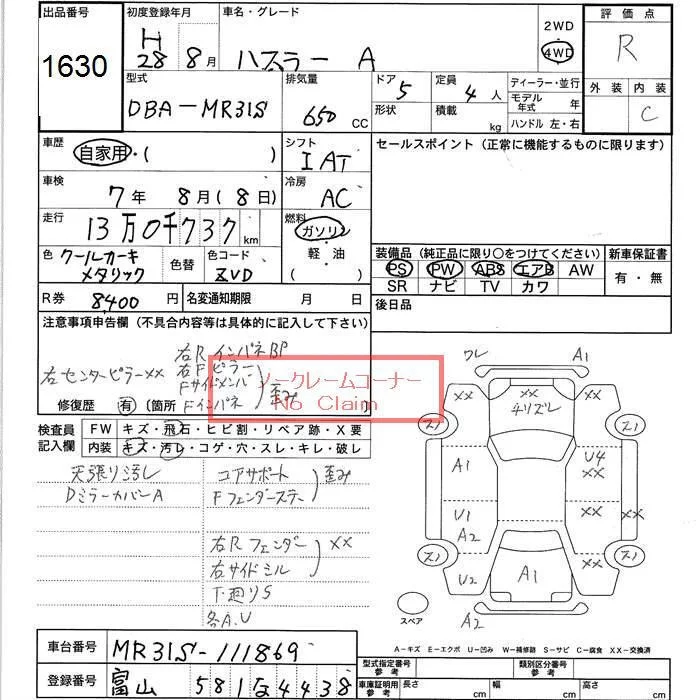 出品番号 初度登録年月 車名・グレード 2WD 評価点
1630 H28年 8月 ハスラー A 4WD R
型式 排気量 ドア 定員 ディーラー・並行 外装 内装
DBA-MR31S 650 CC 5 4人 モデル年式 年 C
形状 積載 kg ハンドル 左・右
車歴 シフト セールスポイント (正常に機能するものに限ります)
自家用・( ) IAT
車検 冷房
7年 8月 (8日) AC
走行 燃料
13万0千737 km ガソリン
色 クールカーキメタリック 色替 色コード ZVD 軽油 ( )
装備品 (純正品に限り○をつけてください) 新車保証書
PS PW ABS エアB AW 有・無
SR ナビ TV カワ
R券 8400円 名変通知期限 月 日 後日品
注意事項申告欄 (不具合内容等は具体的に記入して下さい)
右R インパネBP
右センターピラーXX 右Fピラー
Fサイドメンバ 歪み
修復歴 有 (箇所 Fインパネ
ノークレームコーナー
No Claim
検査員記入欄 FW キズ・飛石・ヒビ割・リペア跡・X要
内装 キズ・汚レ・コゲ・穴・スレ・キレ・破レ
天張り汚レ コアサポート 歪み
DミラーカバーA Fフェンダーステー
右Rフェンダー XX
右サイドシル
下廻りS
各A.U
ワレ A1
XX XX
チリズレ
スノ スノ
A1 U4
XX
U1 XX XX
A2
スノ スノ
U2 A1 XX
スペア A2
A-キズ E-エクボ U-凹み W-補修跡 S-サビ C-腐食 XX-交換済
車台番号 MR31S-111869
登録番号 富山 581 な 4438
型式指定番号 参考 類別区分番号 参考
車庫証明用 参考 長さ cm 幅 cm 高さ cm